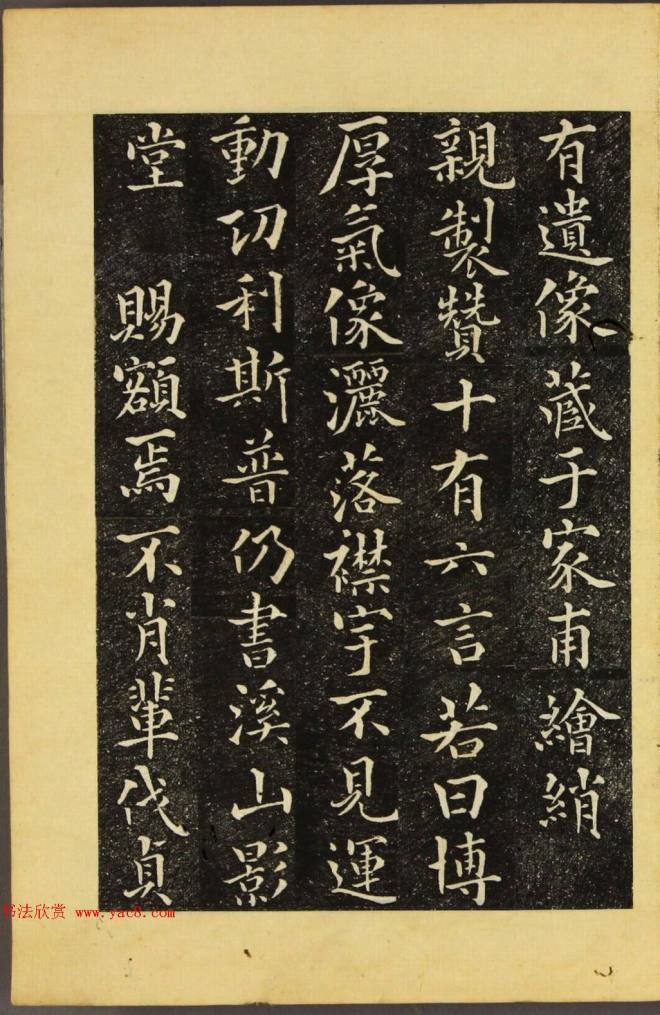 有遺像藏于家甫繪綃
親製贊十有六言若曰博
厚氣像灑落襟宇不見運
動功利斯普仍書溪山影
堂　賜額焉不肖輩伐貞
书法欣赏 www.yac8.com